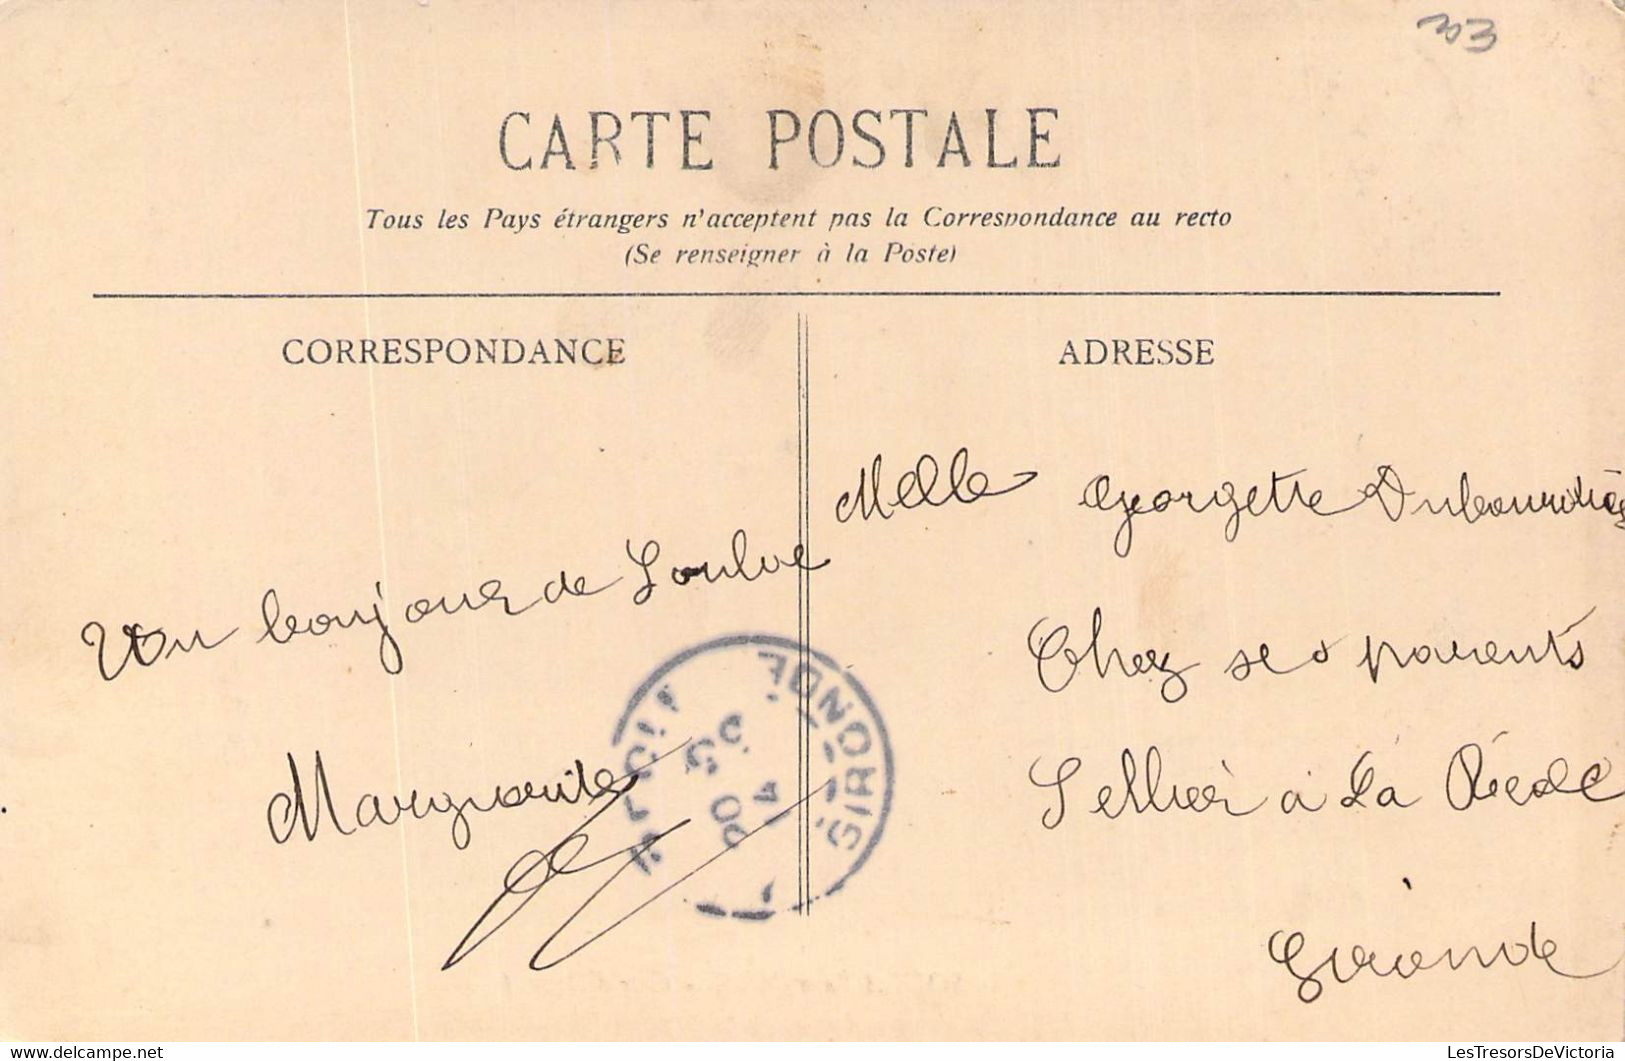 303
CARTE POSTALE
Tous les Pays étrangers n'acceptent pas la Correspondance au recto
(Se renseigner à la Poste)
CORRESPONDANCE
ADRESSE
Un bonjour de
Marguerite
Melle Georgette
Chez ses parents
Sellier à La Réole
Gironde
GIRONDE
LesTresorsDeVictoria
delcampe.net